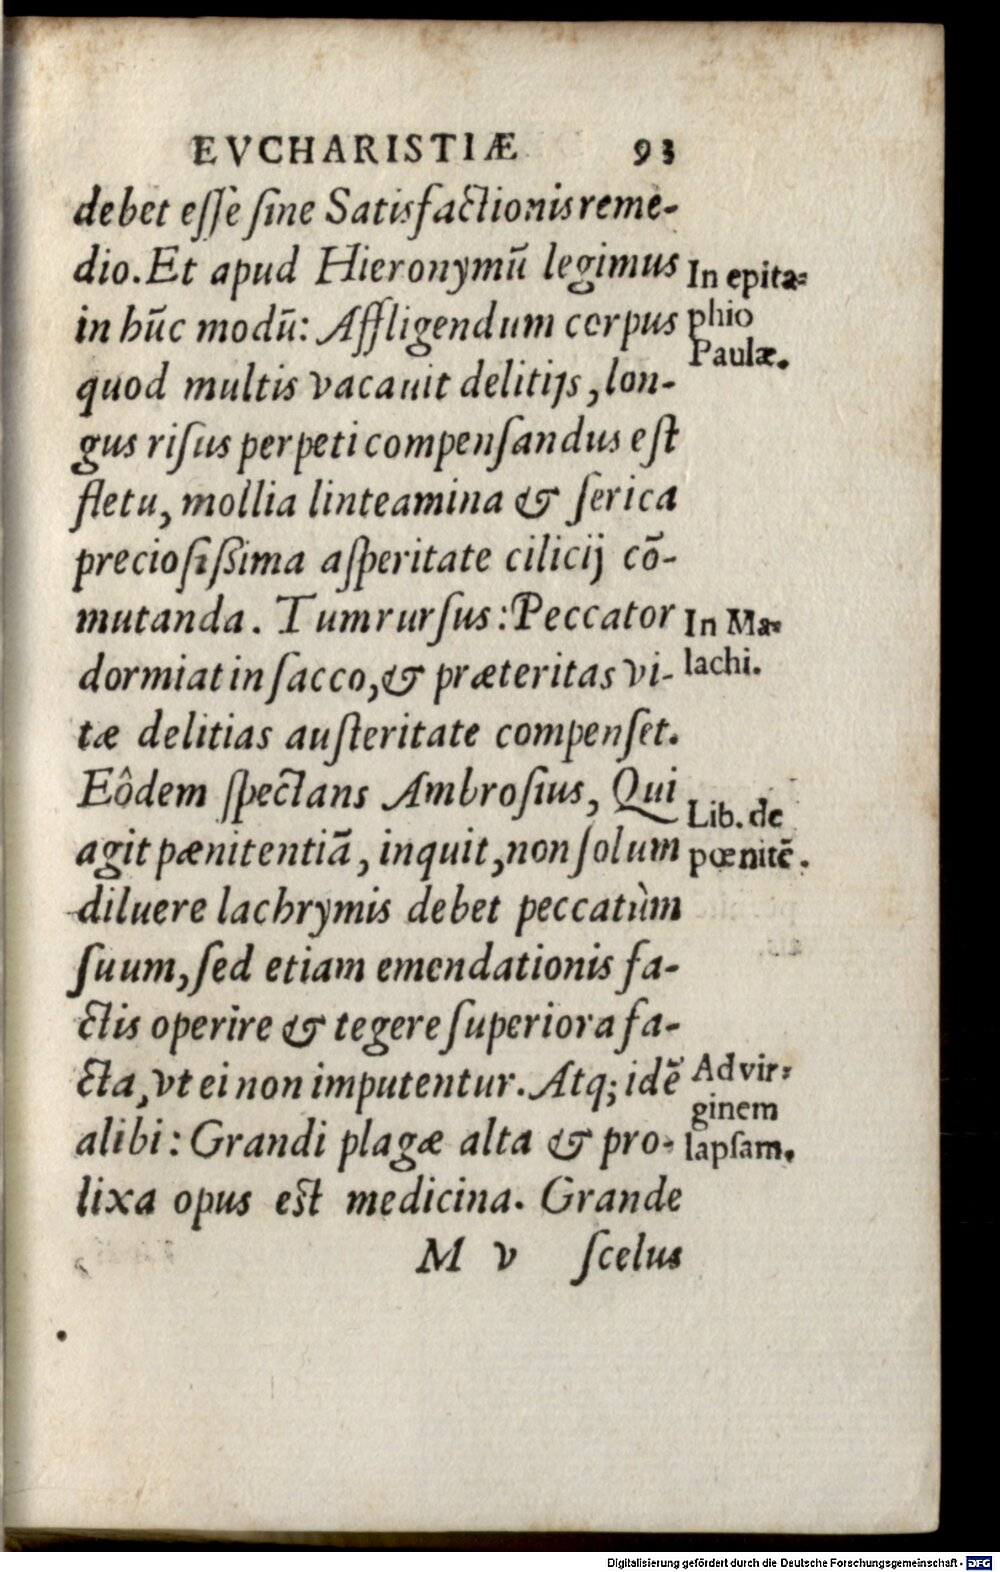 EVCHARISTIÆ 93
debet eſſe ſine Satisfactionis reme-
dio. Et apud Hieronymū legimus
in hūc modū: Affligendum corpus
quod multis vacauit delitijs, lon-
gus riſus perpeti compenſandus eſt
fletu, mollia linteamina & ſerica
precioſiſſima aſperitate cilicij cō-
mutanda. Tum rurſus: Peccator
dormiat in ſacco, & præteritas vi-
tæ delitias auſteritate compenſet.
Eôdem ſpectans Ambroſius, Qui
agit pænitentiā, inquit, non ſolum
diluere lachrymis debet peccatùm
ſuum, ſed etiam emendationis fa-
ctis operire & tegere ſuperiora fa-
cta, vt ei non imputentur. Atq; idē
alibi: Grandi plagæ alta & pro-
lixa opus eſt medicina. Grande
M v ſcelus
In epita-
phio
Paulæ.
In Ma-
lachi.
Lib. de
pœnitē.
Ad vir-
ginem
lapſam.
Digitalisierung gefördert durch die Deutsche Forschungsgemeinschaft - DFG